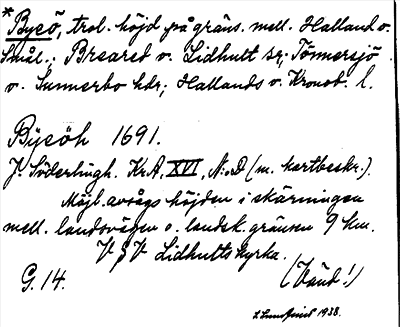 *Bycö, trol. höjd på gräns. mell. Halland o.
Smål.: Breared o. Lidhult sr; Tönnersjö
o. Sunnerbo hdr; Hallands o. Kronob. l.
Bÿcöh 1691.
J. Söderlingh. Kr.A. XVI, N:o D (m. kartbeskr.).
Möjl. avses höjden i skärningen
mell. landsvägen o. landsk.gränsen 9 km.
V g V Lidhults kyrka.
G. 14.
(Vänd!)
1938.